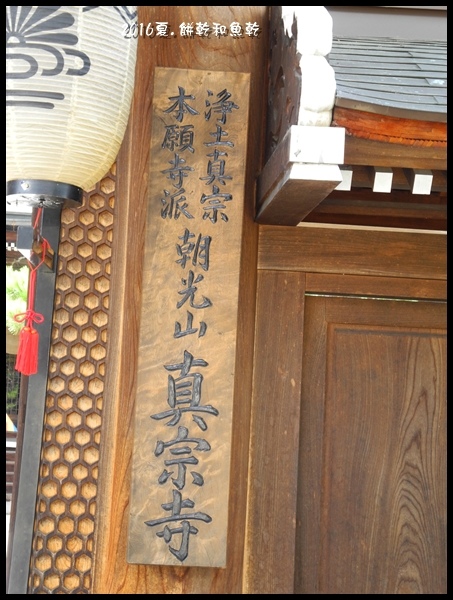 2016夏.餅乾和魚乾
浄土真宗
本願寺派
朝光山
真宗寺